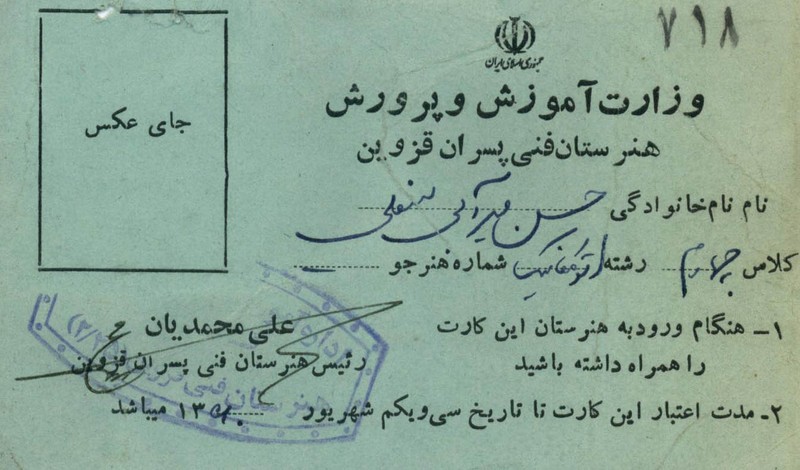 ۷۱۸
جمهوری اسلامی ایران
وزارت آموزش و پرورش
هنرستان فنی پسران قزوین
جای عکس
نام نام خانوادگی حسن
کلاس چهارم رشته اتومکانیک شماره هنرجو
۱- هنگام ورود به هنرستان این کارت
را همراه داشته باشید
۲- مدت اعتبار این کارت تا تاریخ سی و یکم شهریور ۱۳۶۰ میباشد
علی محمدیان
رئیس هنرستان فنی پسران قزوین
هنرستان فنی